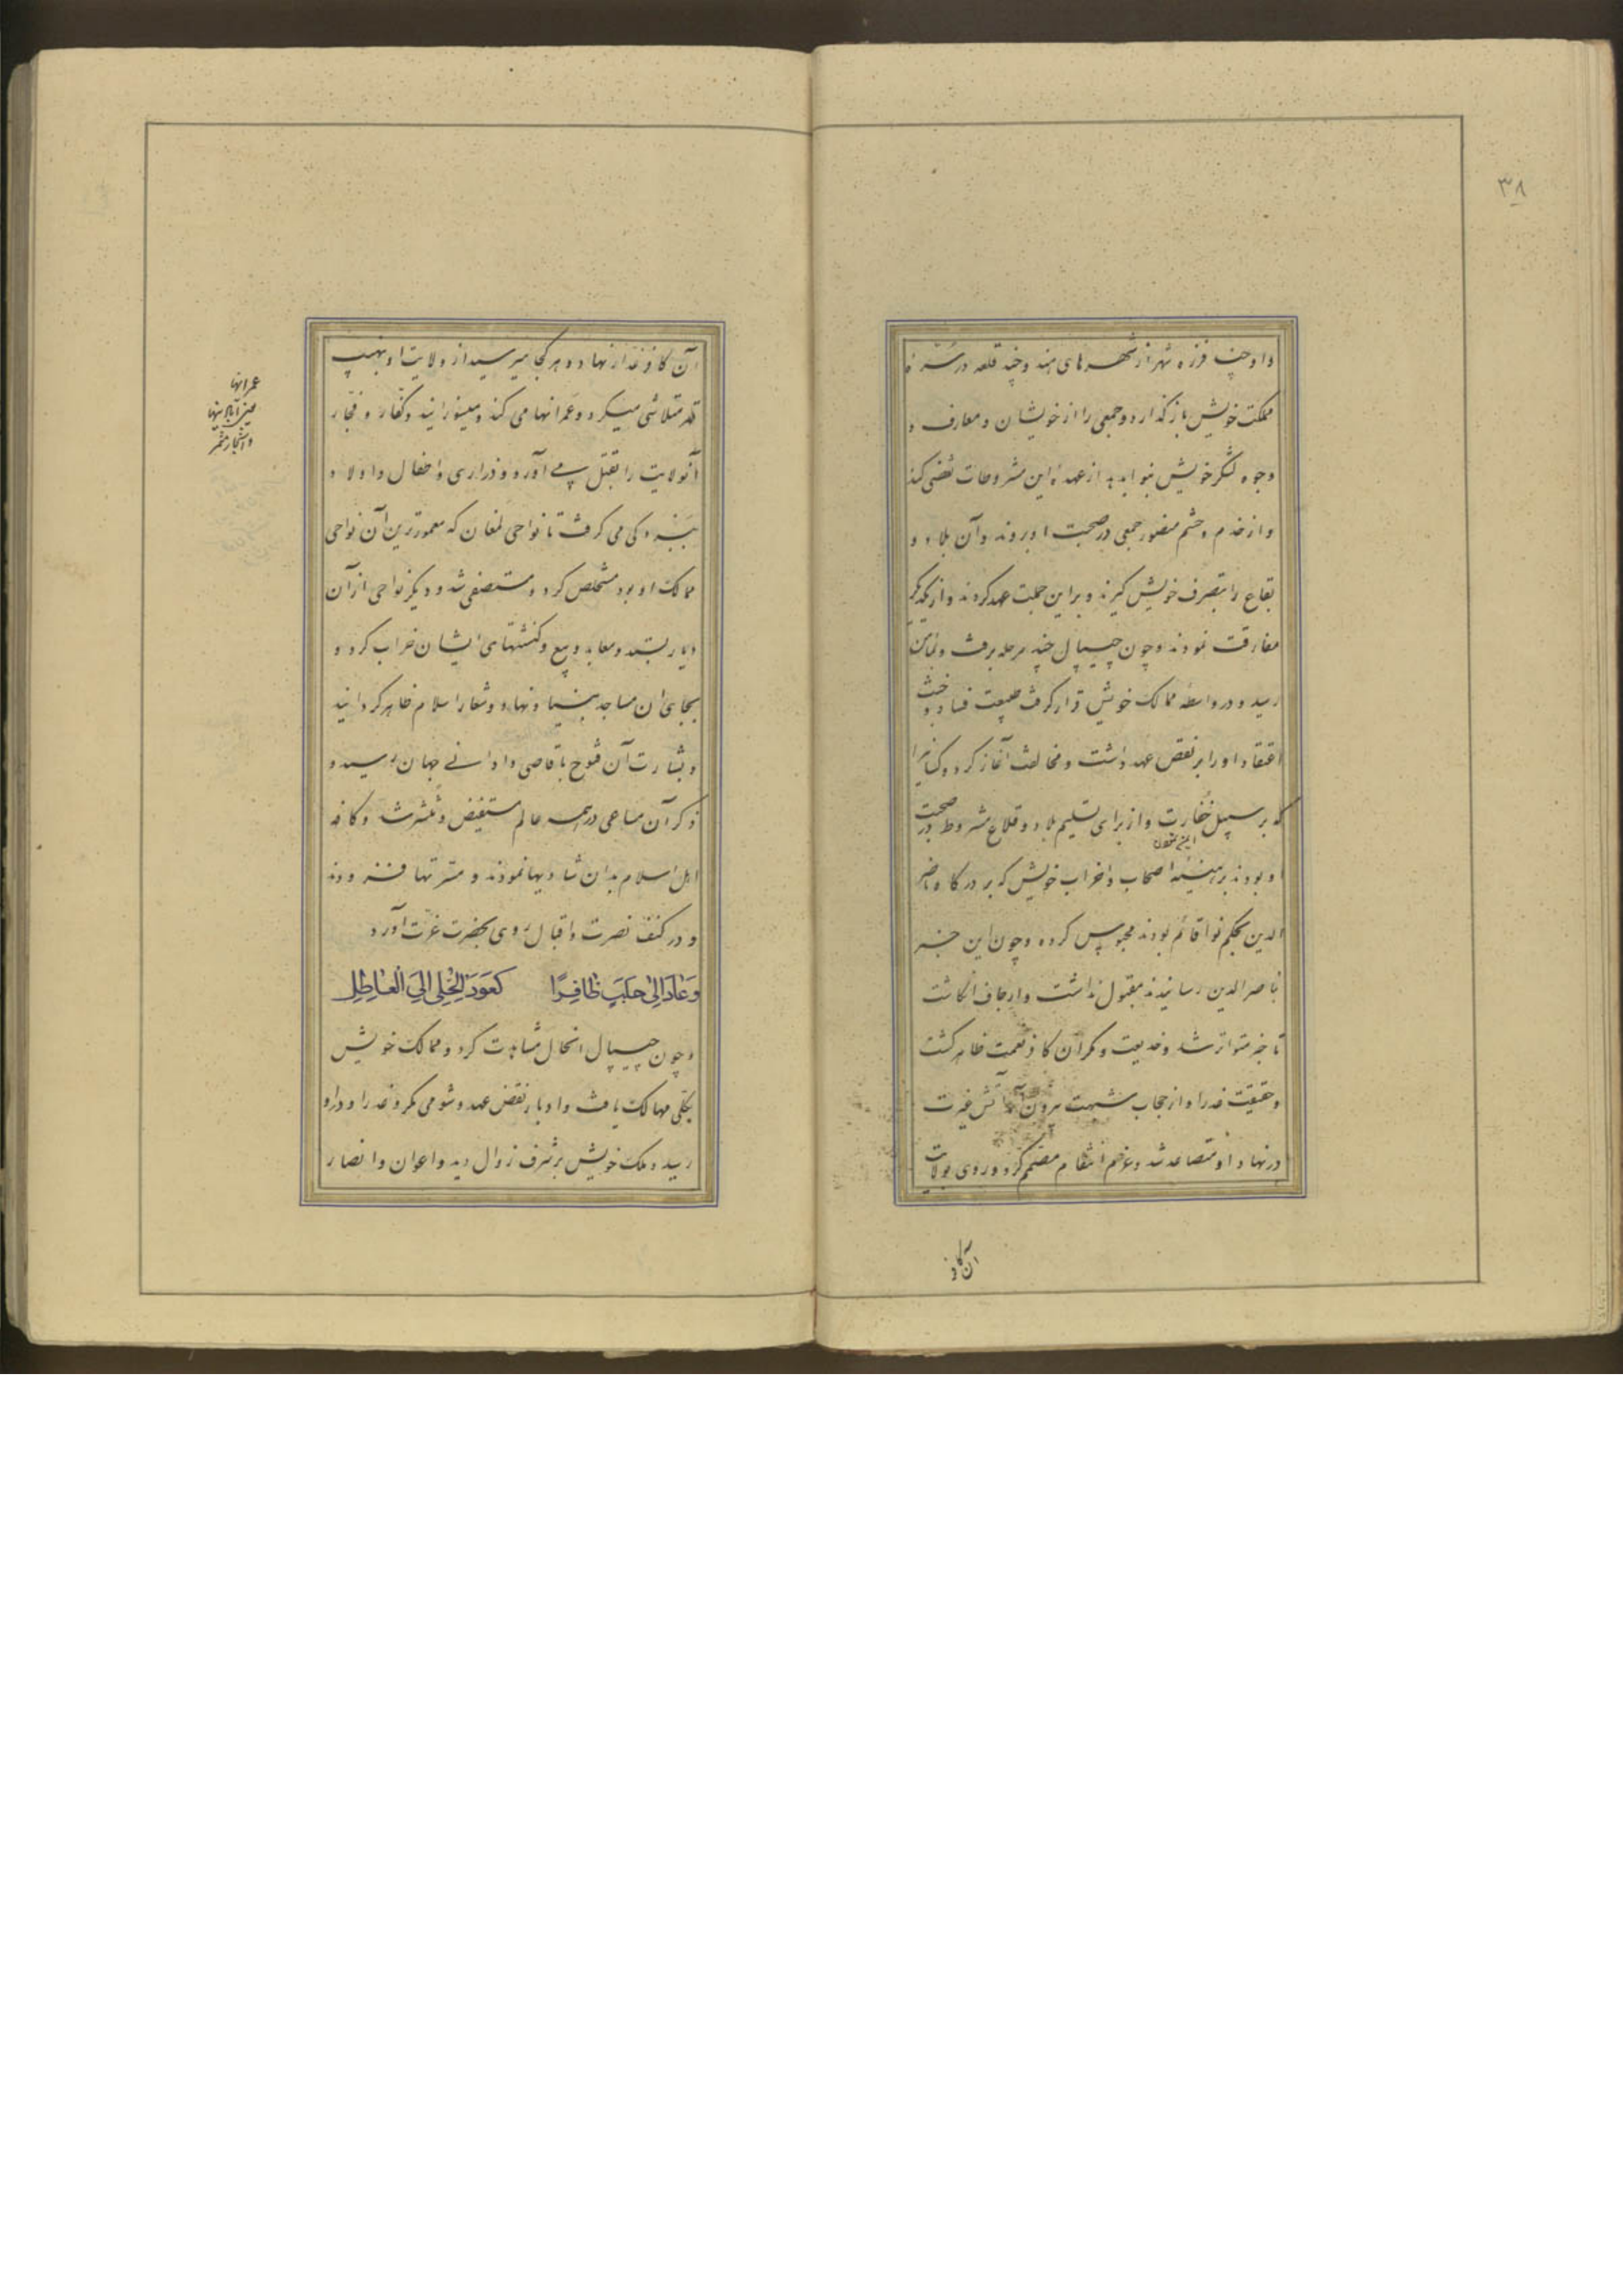 ۳۸
داو چند فرزه شهر از شهرهای هند و چند قلعه در سره
مملکت خویش باز گذارد و جمعی را از خویشان و معارف و
وجوه لشکر خویش بنوا بدهد از عهدهٔ این مشروطات تفصی کند
و از خدم و حشم منصور جمعی در صحبت او بروند و آن بلاد و
بقاع را بتصرف خویش گیرند و براین جملت عهد کردند و از یکدیگر
مفارقت نمودند و چون جیپال چند مرحله برفت و بمأمن
رسید و در واسطهٔ ممالک خویش قرار گرفت طبیعت فساد و خبث
اعتقاد او را بر نقض عهد داشت و مخالفت آغاز کرد و کسانی را
که بر سبیل خفارت و از برای تسلیم بلاد و قلاع مشروط در صحبت
او بودند برهینهٔ اصحاب و احزاب خویش که بر درگاه ناصر
الدین بحکم نوا قائم بودند محبوس کرد و چون این خبر
بناصر الدین رسانیدند مقبول نداشت و ارجاف انگاشت
تا خبر متواتر شد و خدیعت و مکر آن کافر نعمت ظاهر گشت
و حقیقت غدر او از حجاب شبهت بیرون آمد آتش غیرت
در نهاد او متصاعد شد و عزم انتقام مصمم کرد و روی بولایت
آن کافر
آن کافر غدار نهاد و هر کجا میرسید از ولایت او بنهیب
قهر متلاشی میکرد و عمرانها می کند و میسوزانید و کفار و فجار
آنولایت را بقتل می آورد و ذراری و اطفال و اولاد
ببردگی می گرفت تا نواحی لمغان که معمورترین آن نواحی
ممالک او بود مستخلص کرد و مستصفی شد و دیگر نواحی از آن
دیار بستد و معابد و بیع و کنشتهای ایشان خراب کرد و
بجای آن مساجد بنیاد نهاد و شعار اسلام ظاهر گردانید
و بشارت آن فتوح باقاصی و ادانی جهان رسید و
ذکر آن مساعی در همه عالم مستفیض و منتشر شد و کافه
اهل اسلام بدان شادیها نمودند و مسرتها فزودند
و در کنف نصرت و اقبال روی بحضرت غزنت آورد
وَعَادَ اِلیٰ حَلَبٍ ظَافِرًا کَعَوْدِ الحُلِی اِلَی الْعَاطِلِ
و چون جیپال آنحال مشاهدت کرد و ممالک خویش
بکلی مهالک یافت و ادبار نقض عهد و شومی مکر و غدر او در او
رسید و ملک خویش بر شرف زوال دید و اعوان و انصار
عمرانها
یعنی آبادینها
و اشجار مثمر